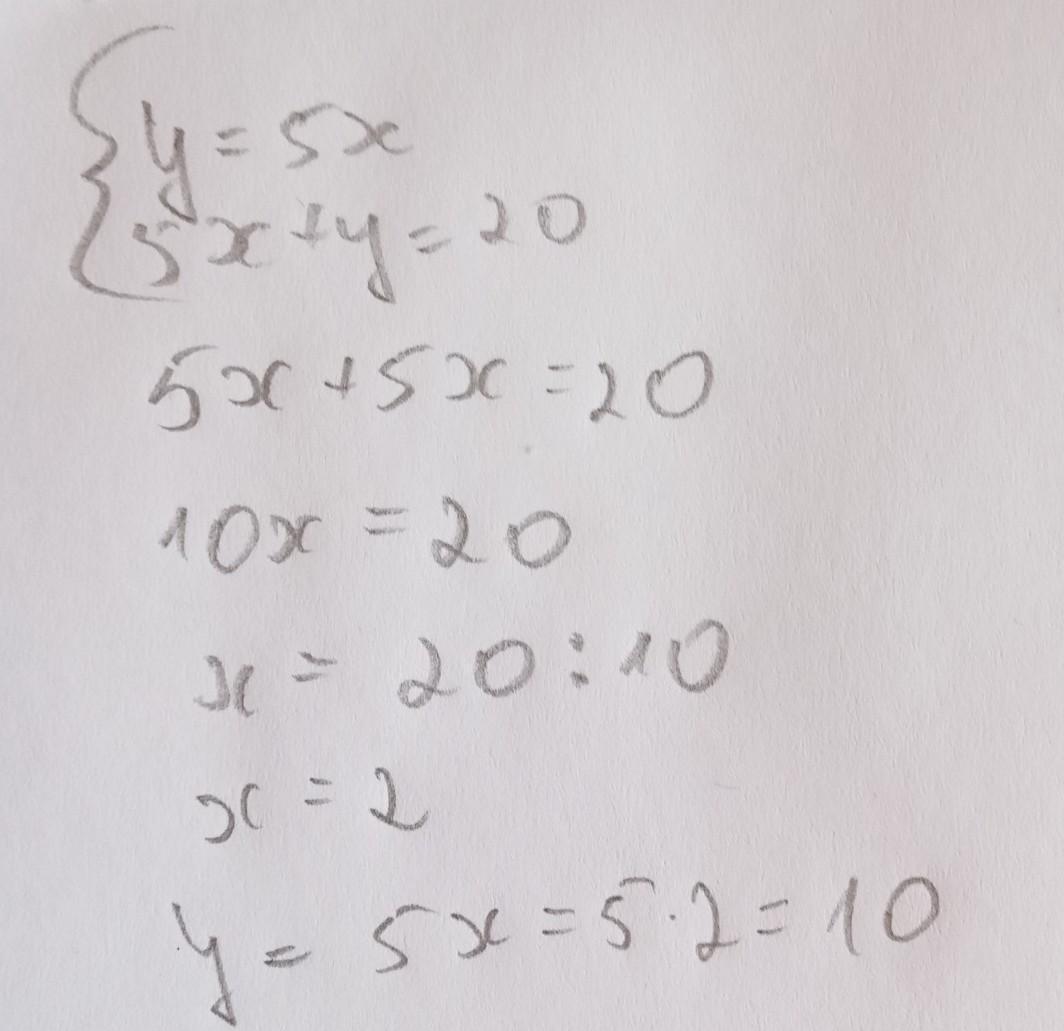 { y = 5x
5x + y = 20
5x + 5x = 20
10x = 20
x = 20 : 10
x = 2
y = 5x = 5 · 2 = 10